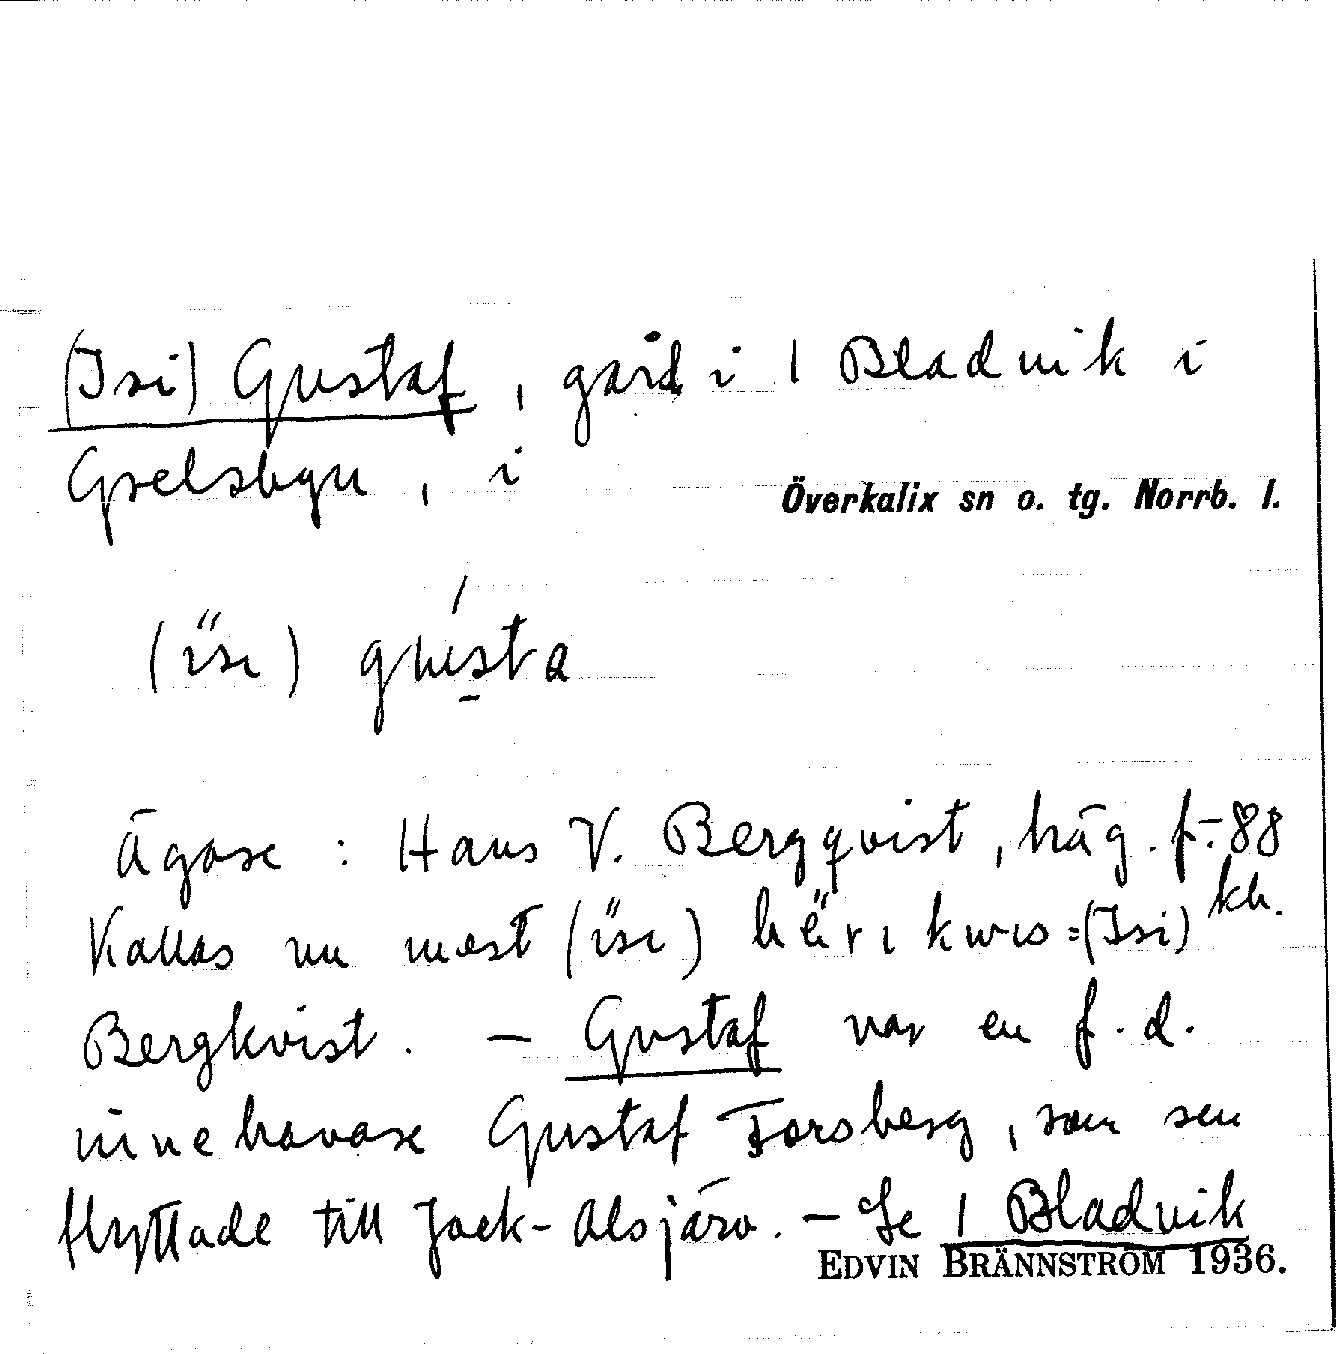 (Isi) Gustaf, gård i 1 Bladvik i
Grelsbyn, i
Överkalix sn o. tg. Norrb. l.
(isi) gusta
Ägare: Hans V. Bergqvist, häg. f. -88
Kallas nu mest (isi) = (Isi) kh.
Bergkvist. – Gustaf var en f. d.
innehavare Gustaf Forsberg, som sen
flyttade till Jock-Alsjärv. – Se 1 Bladvik
EDVIN BRÄNNSTRÖM 1936.